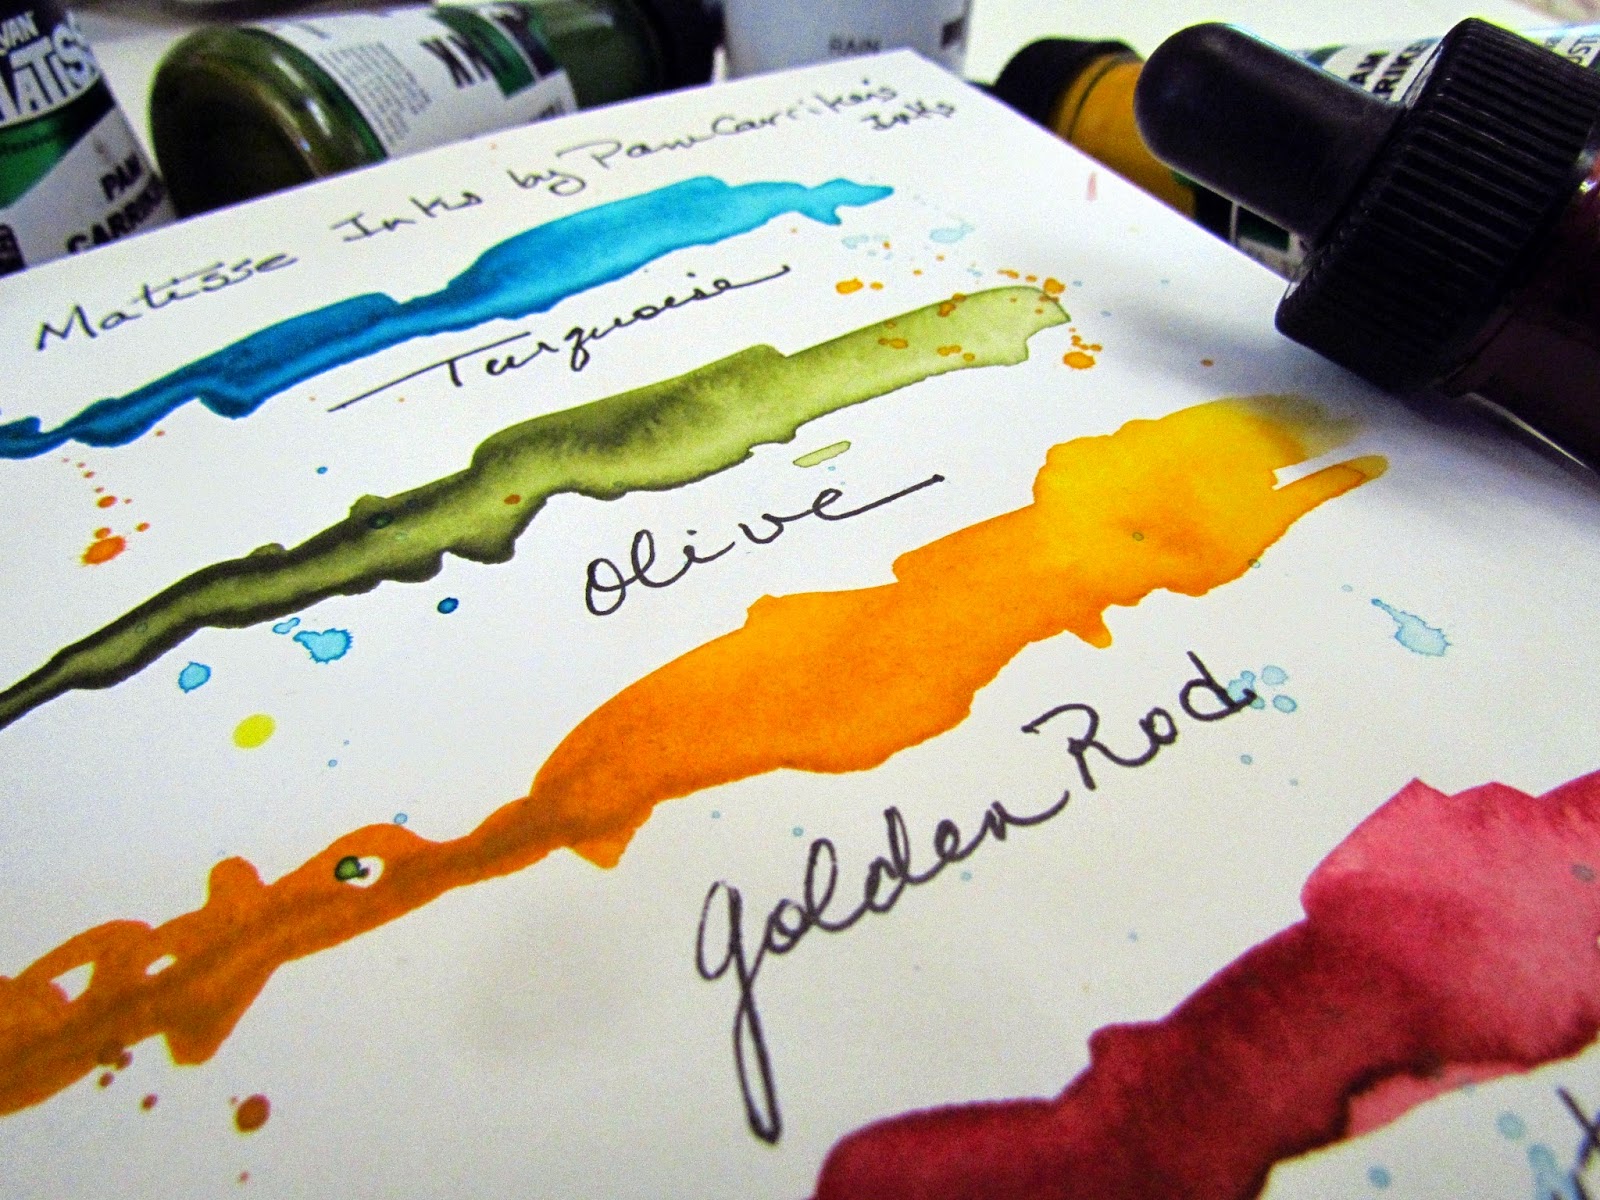 VAN
MATISSE
PAM
CARRIKER
RAIN
PAM
CARRIKER
Matisse Inks by Pam Carriker's
Inks
Turquoise
Olive
Golden Rod